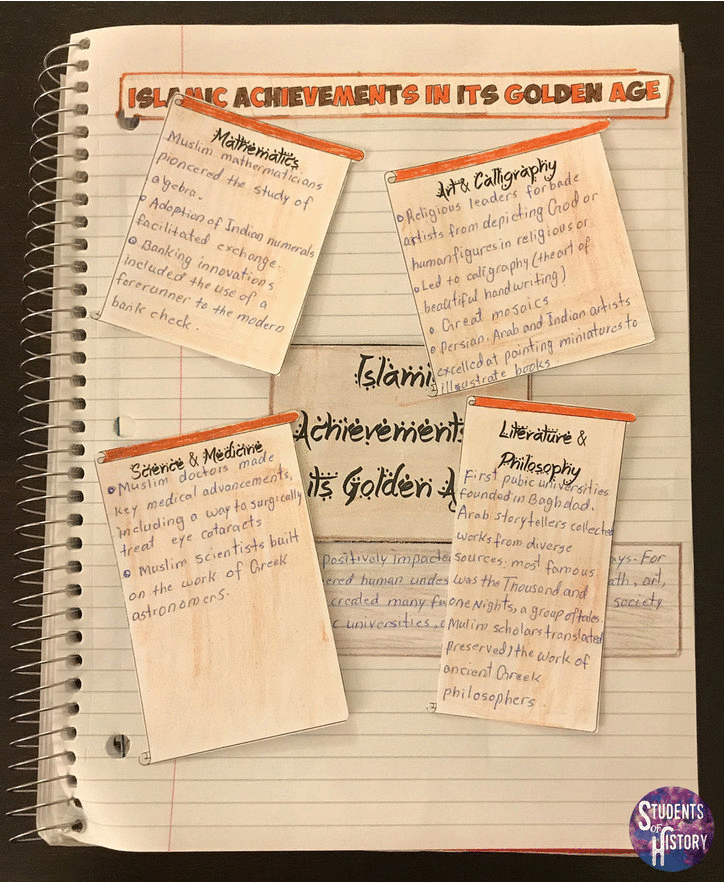 ISLAMIC ACHIEVEMENTS IN ITS GOLDEN AGE
Mathematics
Muslim mathermaticians
pioncered the study of
algebra.
Adoption of Indian numerals
facilitated exchange.
Banking innovations
included the use of a
forerunner to the modern
bank check.
Art & Calligraphy
Religious leaders forbade
artists from depicting God or
human figures in religious or
Led to caligraphy (the art of
beautiful hand writing)
Great mosaics
Persian, Arab and Indian artists
excelled at painting miniatures to
illustrate books
Islami
Achievement
its Golden A
Science & Medicine
Muslim doctors made
key medical advancements,
including a way to surgically
treat eye cataracts
Muslim scientists built
on the work of Greek
astronomers.
Literature &
Philosophy
First pubic universities
founded in Baghdad.
Arab storytellers collected
works from diverse
sources; most famous
was the Thousand and
one Nights, a group of tales.
Mulim scholars translated
preserved, the work of
ancient Greek
philosophers.
positively impacte ays. For
ered human undes ath, art,
created many fu society
c universities,
STUDENTS
OF
HISTORY